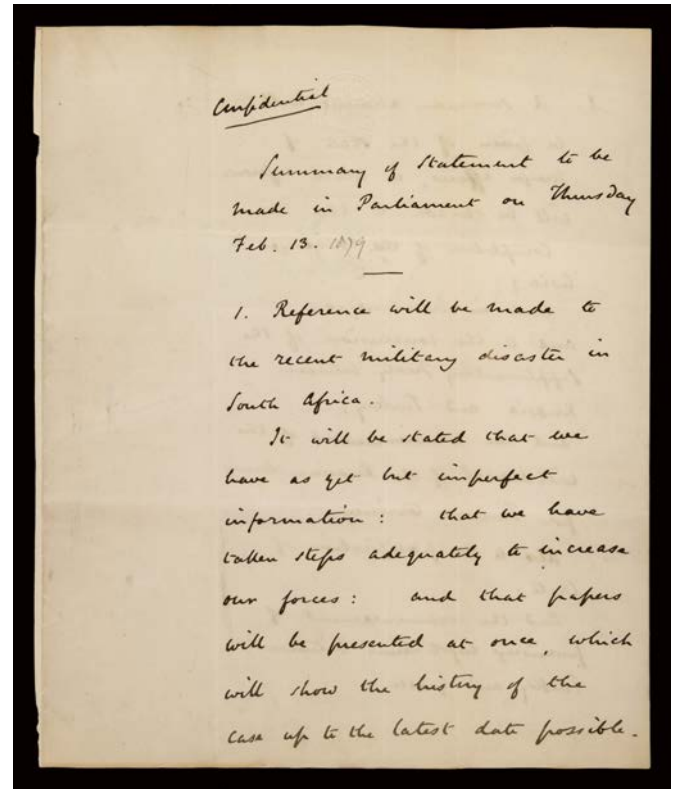 Confidential
Summary of Statement to be
made in Parliament on Thursday
Feb. 13. 1879
1. Reference will be made to
the recent military disaster in
South Africa.
It will be stated that we
have as yet but imperfect
information: that we have
taken steps adequately to increase
our forces: and that papers
will be presented at once, which
will show the history of the
case up to the latest date possible.